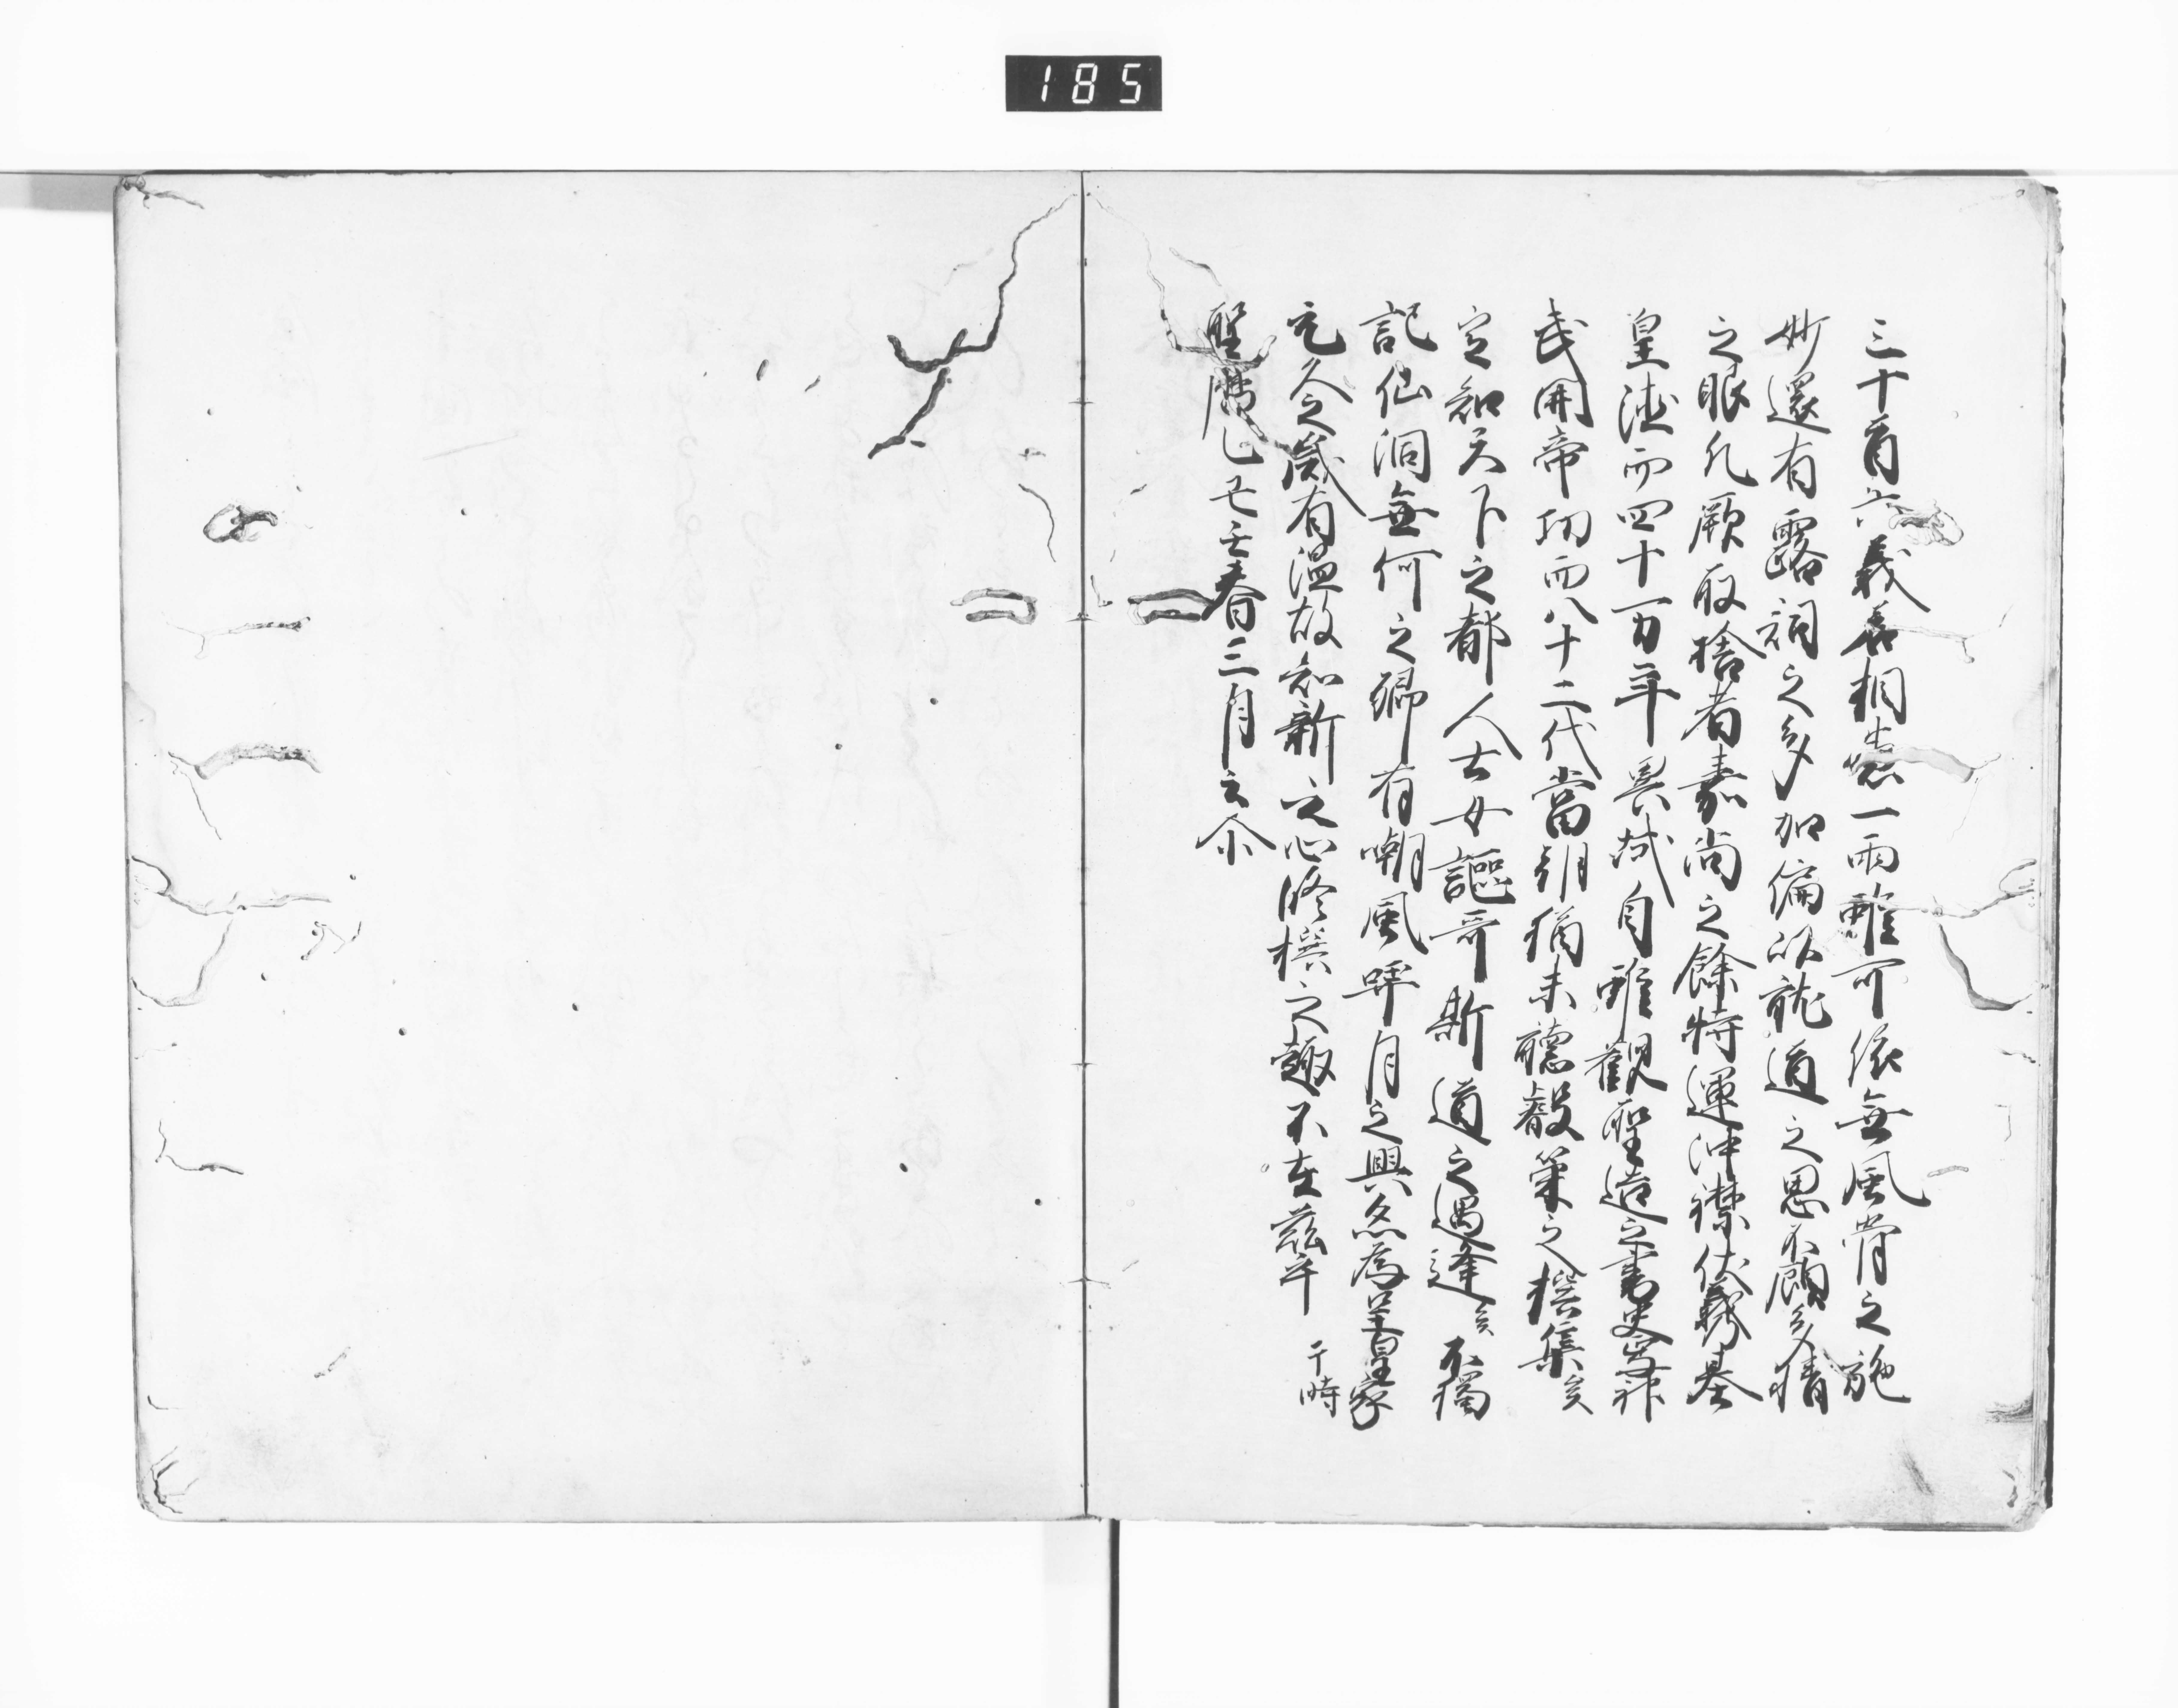 185
三十首六義若相兼一兩雖可依無風骨之絶
妙還有露詞之多加偏以耽道之思不顧多情
之眼凡厥取捨者嘉尚之餘特運沖襟伏羲基
皇徳而四十万年異域自雖觀聖造之書史焉神
武開帝功而八十二代當朝猶未聽叡策之撰集矣
定知天下之都人士女謳哥斯道之遇逢矣不獨
記仙洞無何之郷有嘲風哢月之興亦為呈皇家
元久之歳有温故知新之心修撰之趣不在茲乎 于時
聖暦乙丑王春三月云尒